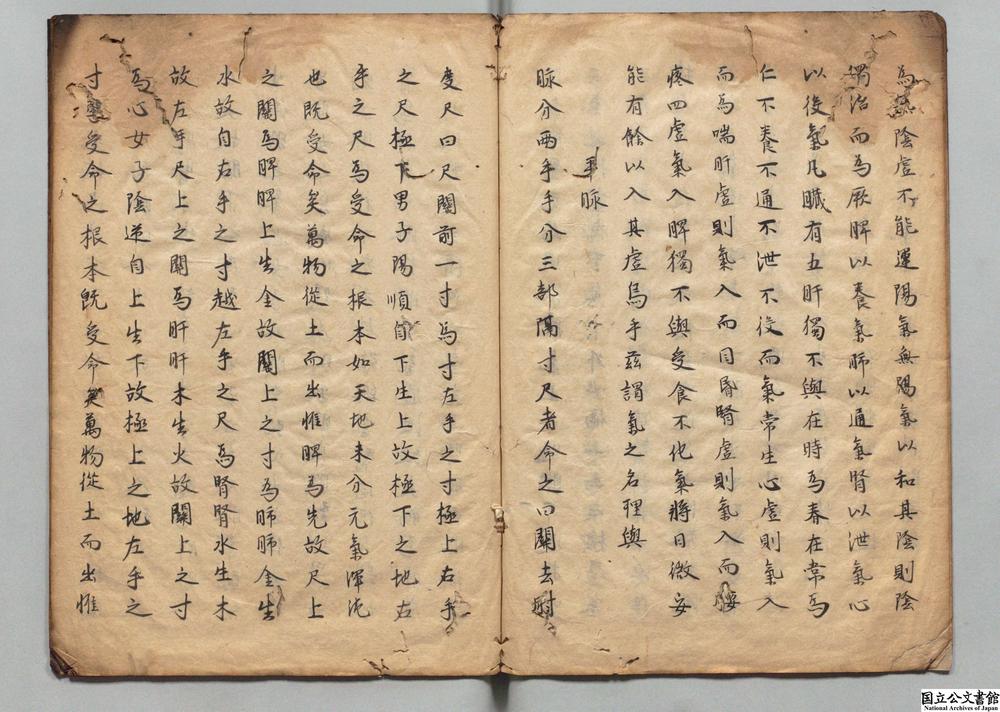 為熱陰虛不能運陽氣無陽氣以和其陰則陰
獨治而為厥脾以養氣肺以通氣腎以泄氣心
以後氣凡臟有五肝獨不與在時為春在常為
仁不養不通不泄不役而氣常生心虛則氣入
而為喘肝虛則氣入而目昏腎虛則氣入而腰
疼四虛氣入脾獨不與受食不化氣將日微安
能有餘以入其虛烏乎茲謂氣之名理與
平脉
脉分兩手手分三部隔寸尺者命之曰關去肘
度尺曰尺關前一寸為寸左手之寸極上右手
之尺極下男子陽順自下生上故極下之地右
手之尺為受命之根本如天地未分元氣渾沌
也既受命矣萬物從土而出惟脾為先故尺上
之關為脾脾上生金故關上之寸為肺肺金生
水故自右手之寸越左手之尺為腎腎水生木
故左手尺上之關為肝肝木生火故關上之寸
為心女子陰逆自上生下故極上之地左手之
寸為受命之根本既受命矣萬物從土而出惟
国立公文書館
National Archives of Japan